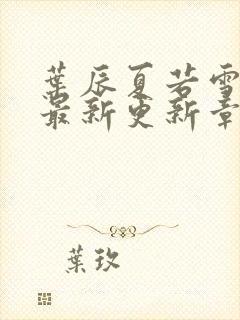 葉辰夏若雪
最新更新章
葉玖